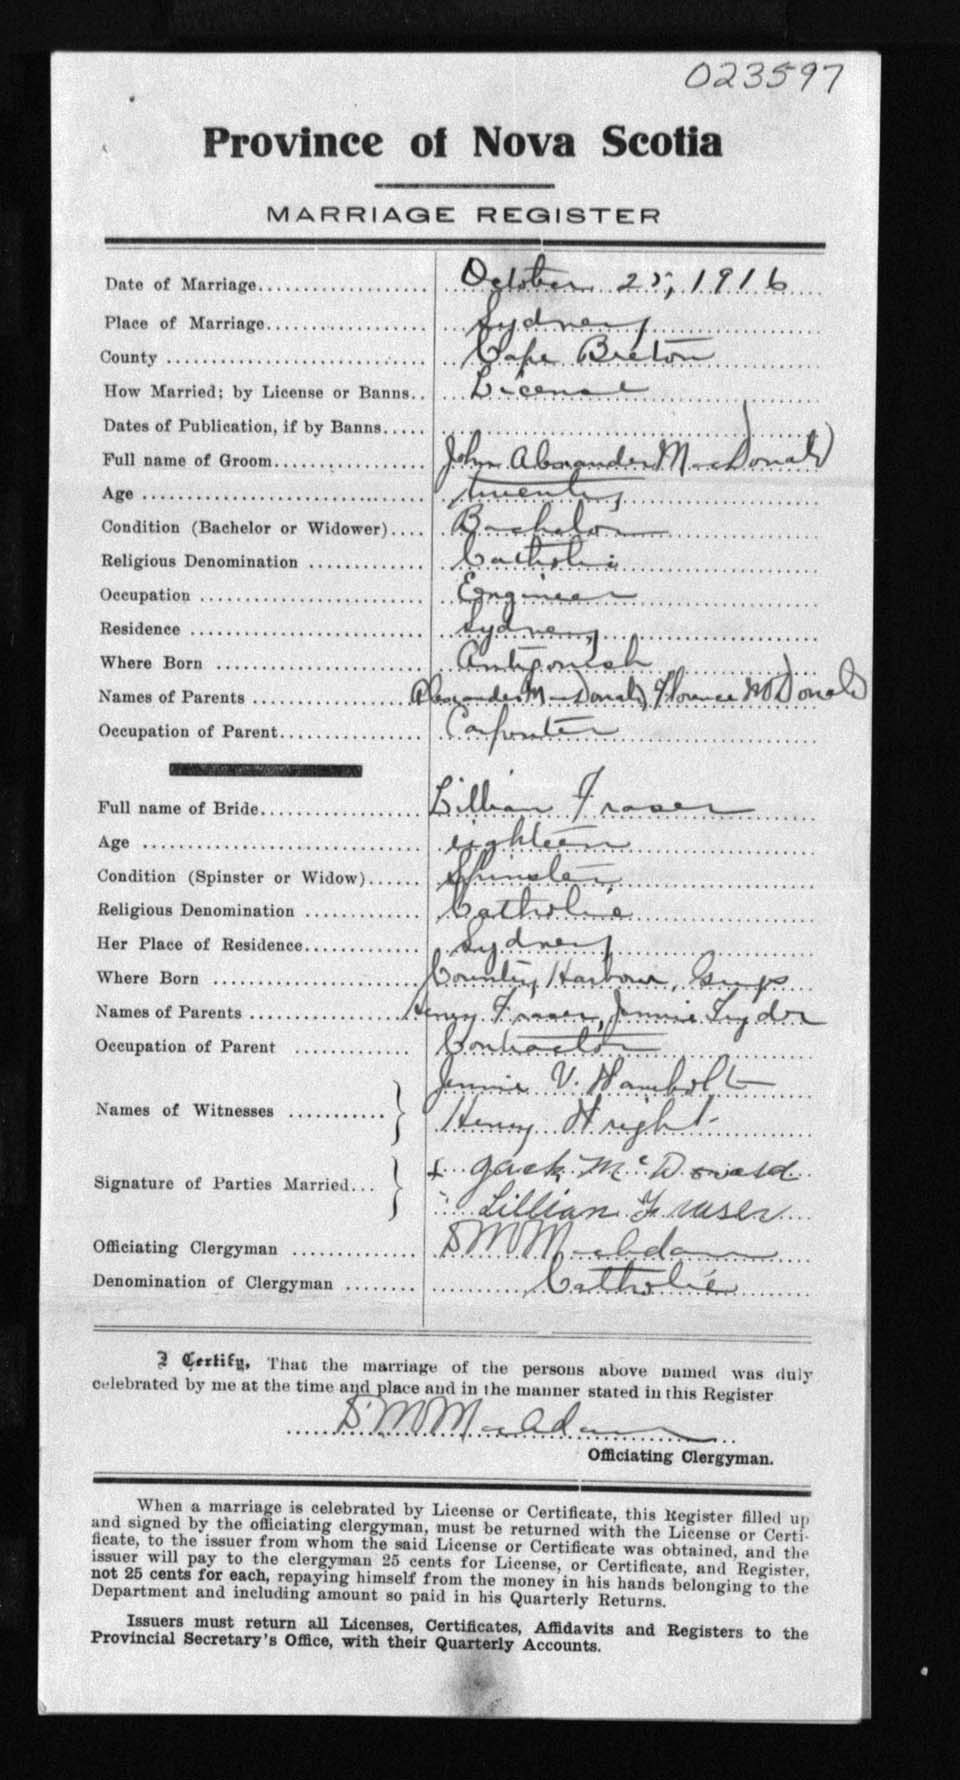 023597
Province of Nova Scotia
MARRIAGE REGISTER
Date of Marriage October 25, 1916
Place of Marriage Sydney
County Cape Breton
How Married; by License or Banns License
Dates of Publication, if by Banns
Full name of Groom John Alexander MacDonald
Age twenty
Condition (Bachelor or Widower) Bachelor
Religious Denomination Catholic
Occupation Engineer
Residence Sydney
Where Born Antigonish
Names of Parents Alexander MacDonald, Florence McDonald
Occupation of Parent Carpenter
Full name of Bride Lillian Fraser
Age eighteen
Condition (Spinster or Widow) Spinster
Religious Denomination Catholic
Her Place of Residence Sydney
Where Born Country Harbour, Guys
Names of Parents Henry Fraser, Jennie
Occupation of Parent Contractor
Jennie V.
Names of Witnesses
Henry Wright
Jack McDonald
Signature of Parties Married
Lillian Fraser
Officiating Clergyman MacAdam
Denomination of Clergyman Catholic
I Certify, That the marriage of the persons above named was duly
celebrated by me at the time and place and in the manner stated in this Register
MacAdam
Officiating Clergyman.
When a marriage is celebrated by License or Certificate, this Register filled up
and signed by the officiating clergyman, must be returned with the License or Certi-
ficate, to the issuer from whom the said License or Certificate was obtained, and the
issuer will pay to the clergyman 25 cents for License, or Certificate, and Register,
not 25 cents for each, repaying himself from the money in his hands belonging to the
Department and including amount so paid in his Quarterly Returns.
Issuers must return all Licenses, Certificates, Affidavits and Registers to the
Provincial Secretary's Office, with their Quarterly Accounts.